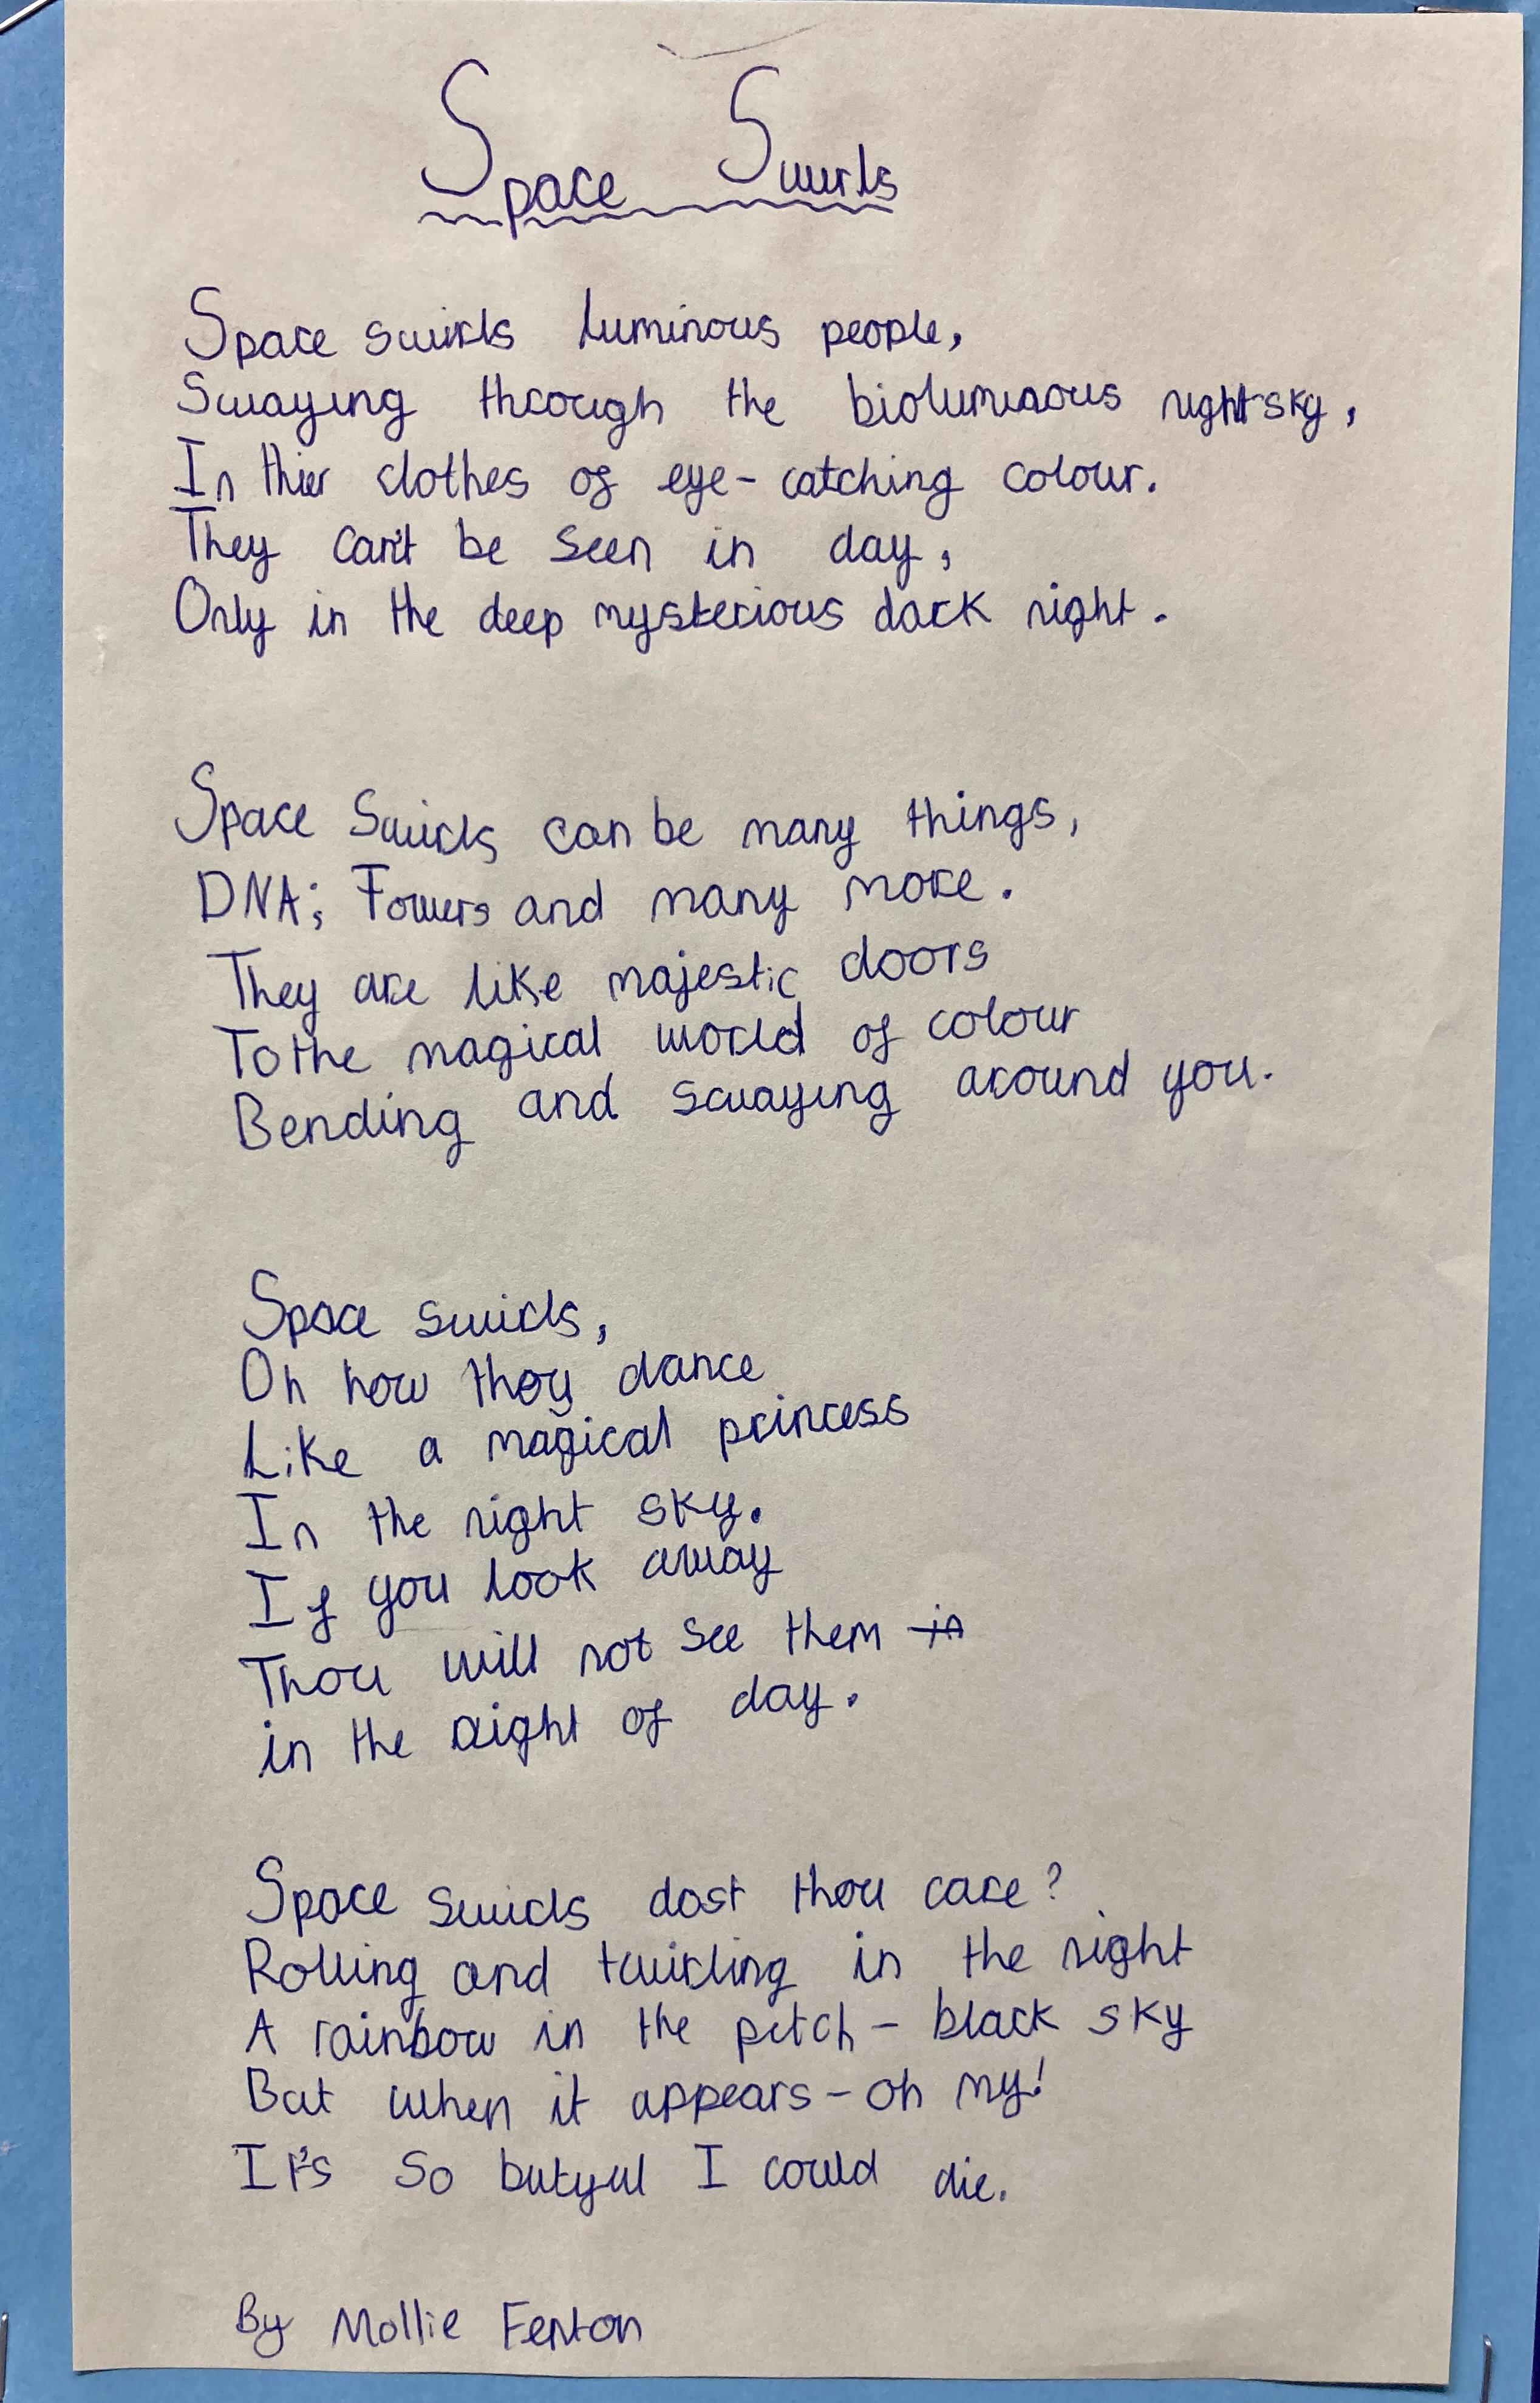 Space Swirls
Space swirls luminous people,
Swaying through the bioluminous nightsky,
In thier clothes of eye-catching colour.
They can't be seen in day,
Only in the deep mysterious dark night.
Space Swirls can be many things,
DNA; Fowers and many more.
They are like majestic doors
To the magical world of colour
Bending and swaying around you.
Space swirls,
Oh how they dance
Like a magical princess
In the night sky.
If you look away
Thou will not see them in
in the night of day.
Space swirls dost thou care?
Rolling and twirling in the night
A rainbow in the pitch-black sky
But when it appears-oh my!
It's so butyul I could die.
By Mollie Fenton